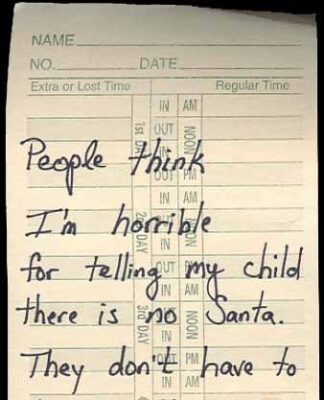 NAME
NO. DATE
Extra or Lost Time Regular Time
IN AM
1st DAY OUT NOON
People think
IN
OUT PM
IN AM
I'm horrible
2nd DAY OUT NOON
IN
for telling my child
OUT PM
IN AM
there is no Santa.
3rd DAY OUT NOON
IN
They don't have to
OUT PM
IN AM